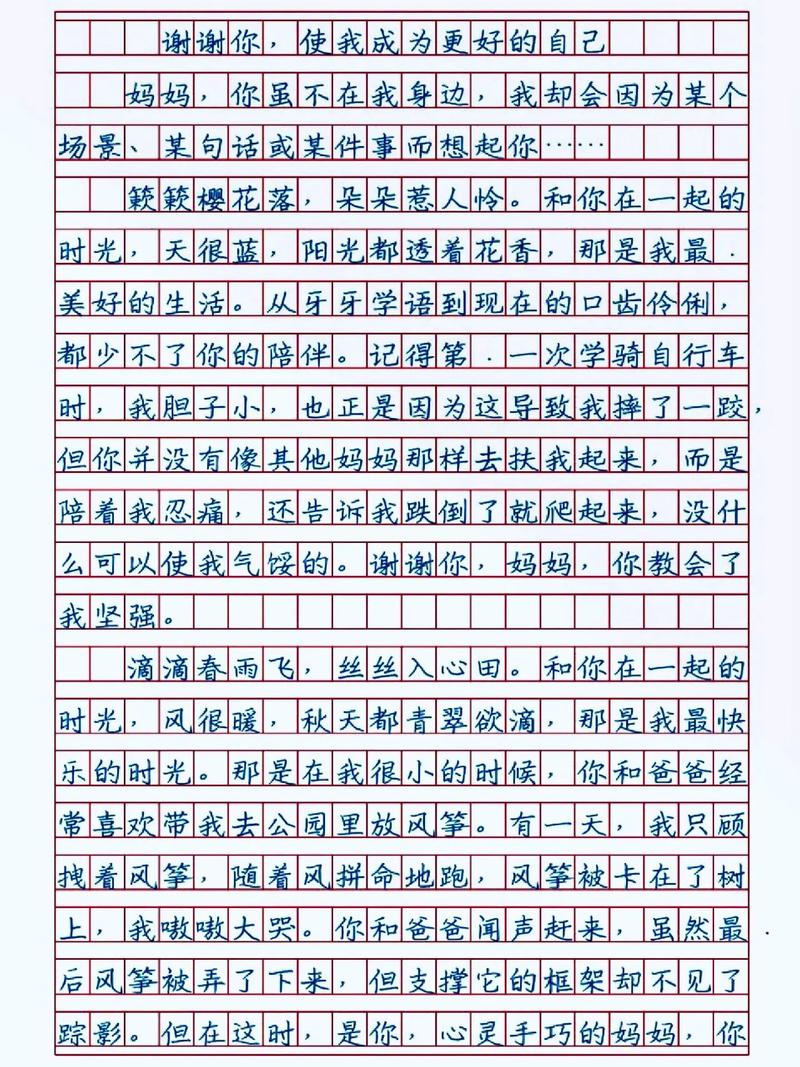 谢谢你，使我成为更好的自己
妈妈，你虽不在我身边，我却会因为某个
场景、某句话或某件事而想起你……
簌簌樱花落，朵朵惹人怜。和你在一起的
时光，天很蓝，阳光都透着花香，那是我最.
美好的生活。从牙牙学语到现在的口齿伶俐，
都少不了你的陪伴。记得第.一次学骑自行车
时，我胆子小，也正是因为这导致我摔了一跤，
但你并没有像其他妈妈那样去扶我起来，而是
陪着我忍痛，还告诉我跌倒了就爬起来，没什
么可以使我气馁的。谢谢你，妈妈，你教会了
我坚强。
滴滴春雨飞，丝丝入心田。和你在一起的
时光，风很暖，秋天都青翠欲滴，那是我最快
乐的时光。那是在我很小的时候，你和爸爸经
常喜欢带我去公园里放风筝。有一天，我只顾
拽着风筝，随着风拼命地跑，风筝被卡在了树
上，我嗷嗷大哭。你和爸爸闻声赶来，虽然最.
后风筝被弄了下来，但支撑它的框架却不见了
踪影。但在这时，是你，心灵手巧的妈妈，你